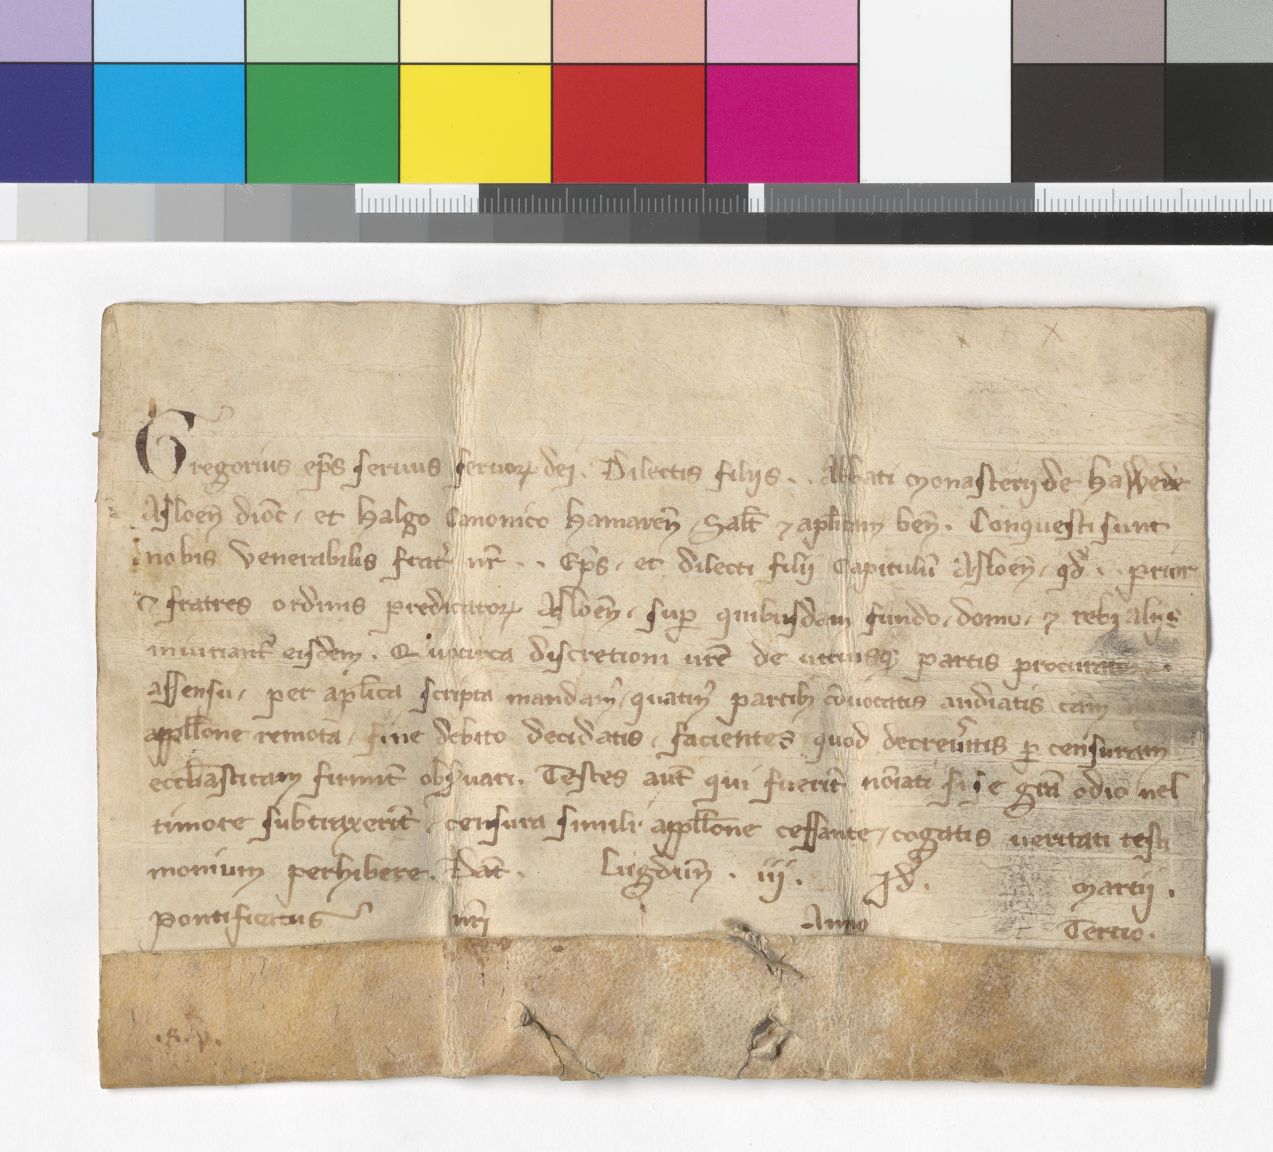 Gregorius ep̄s seruus seruoꝝ dei. Dilectis filijs . . Abbati Monasterij de hawede
Asloen̄ dioc̄, et halgo Canonico hamaren̄, Sal̄t ⁊ ap̄licam ben̄. Conquesti sunt
nobis Venerabilis frat̄ nr̄ . . Ep̄s, et dilecti filij Capitulū Asloen̄, qd̄ . . prior
⁊ fratres ordinis predicatoꝝ Asloen̄, suꝑ quibusdam fundo, domo, ⁊ rebꝫ alijs
iniuriant̄ eisdem. Quocirca discretioni ur̄e de utriusqꝫ partis procurator
assensu, per ap̄lica scripta mandam̄, quatin̄ partibꝫ cōuocatis audiatis cām
appll̄one remota, fine debito decidatis, facientes quod decreūitis ꝑ censuram
eccl̄iasticam firmit̄ obs̄uari. Testes aut̄ qui fuerīt nōiati si se gr̄a odio uel
timore subtraxerīt, censura simili appll̄one cessante, cogatis ueritati testi
monium perhibere. Dat̄. Lugdun̄ . iij . Id̄. Martij .
pontificatus nr̄i Anno Tertio.
.R.p.